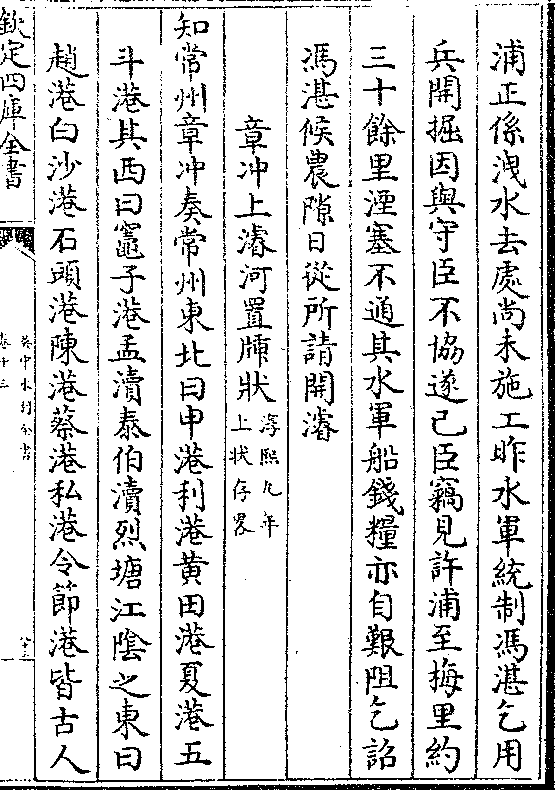 浦正係洩水去處尚未施工昨水軍統制馮湛乞用
兵開掘因與守臣不協遂已臣竊見許浦至梅里約
三十餘里湮塞不通其水軍船錢糧亦自艱阻乞詔
馮湛候農隙日從所請開濬
章冲上濬河置牐狀淳熙九年上狀存畧
知常州章冲奏常州東北曰申港利港黄田港夏港五
斗港其西曰竈子港孟瀆泰伯瀆烈塘江陰之東曰
趙港白沙港石頭港陳港蔡港私港令節港皆古人
欽定四庫全書
吳中水利全書
卷十三